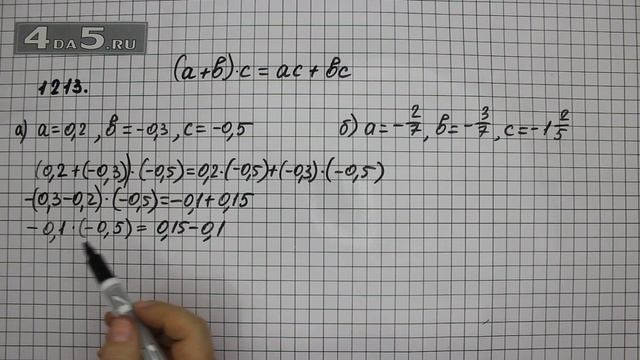 4DA5.RU
(a+b)·c = ac + bc
1213.
а) a=0,2, b=-0,3, c=-0,5
(0,2+(-0,3))·(-0,5)=0,2·(-0,5)+(-0,3)·(-0,5)
-(0,3-0,2)·(-0,5)=-0,1+0,15
-0,1·(-0,5)= 0,15-0,1
б) a=-2/7, b=-3/7, c=-1 2/5